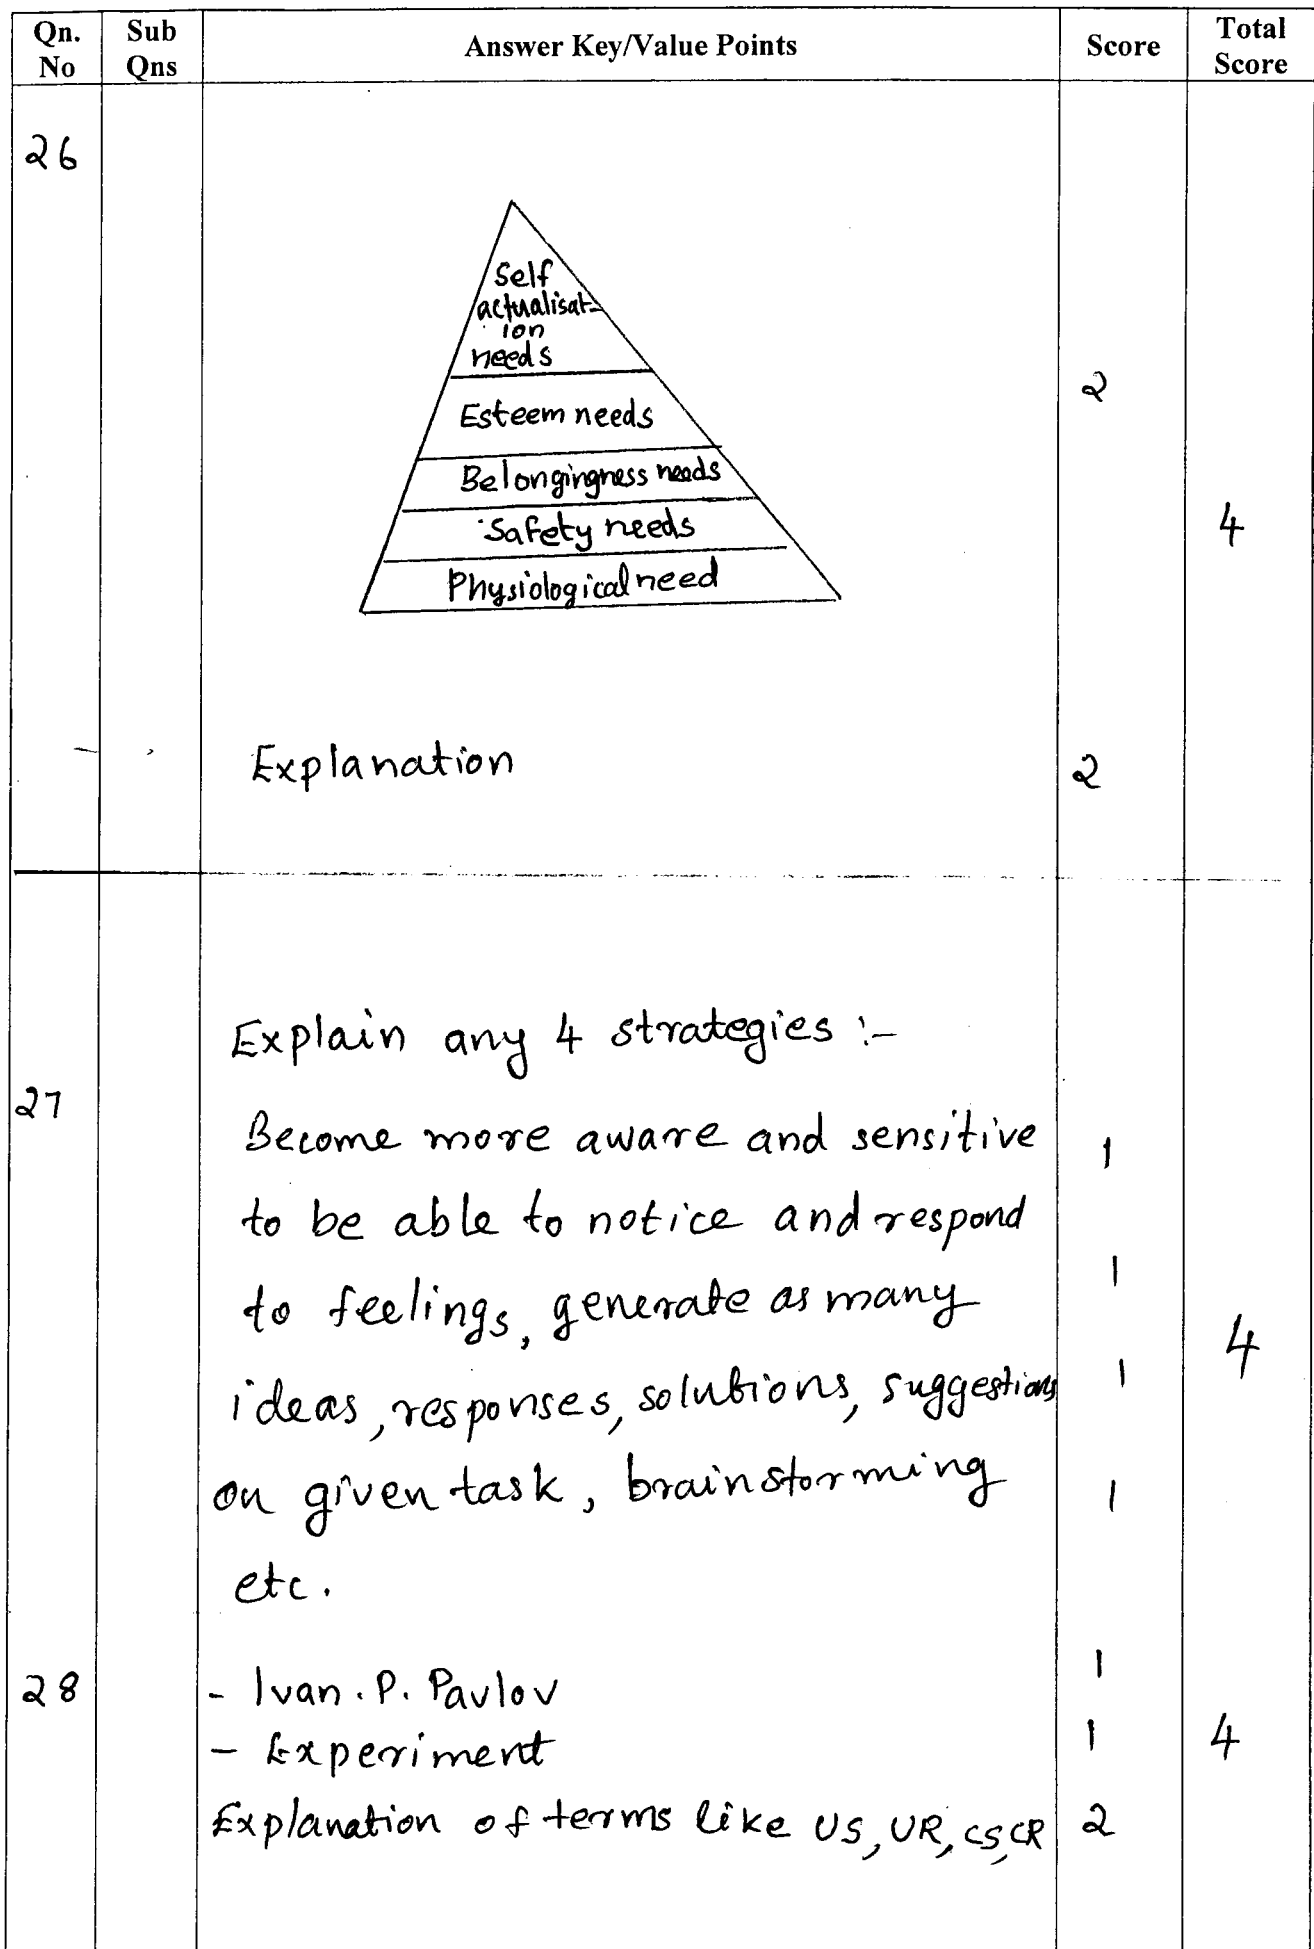 Qn. No
Sub Qns
Answer Key/Value Points
Score
Total Score
26
Self
actualisat-
ion
needs
Esteem needs
Belongingness needs
Safety needs
Physiological need
2
4
Explanation
2
Explain any 4 strategies :-
27
Become more aware and sensitive
1
to be able to notice and respond
1
to feelings, generate as many
4
ideas, responses, solutions, suggestions
1
on given task, brainstorming
1
etc.
28
- Ivan. P. Pavlov
1
- Experiment
1
4
Explanation of terms like US, UR, CS, CR
2